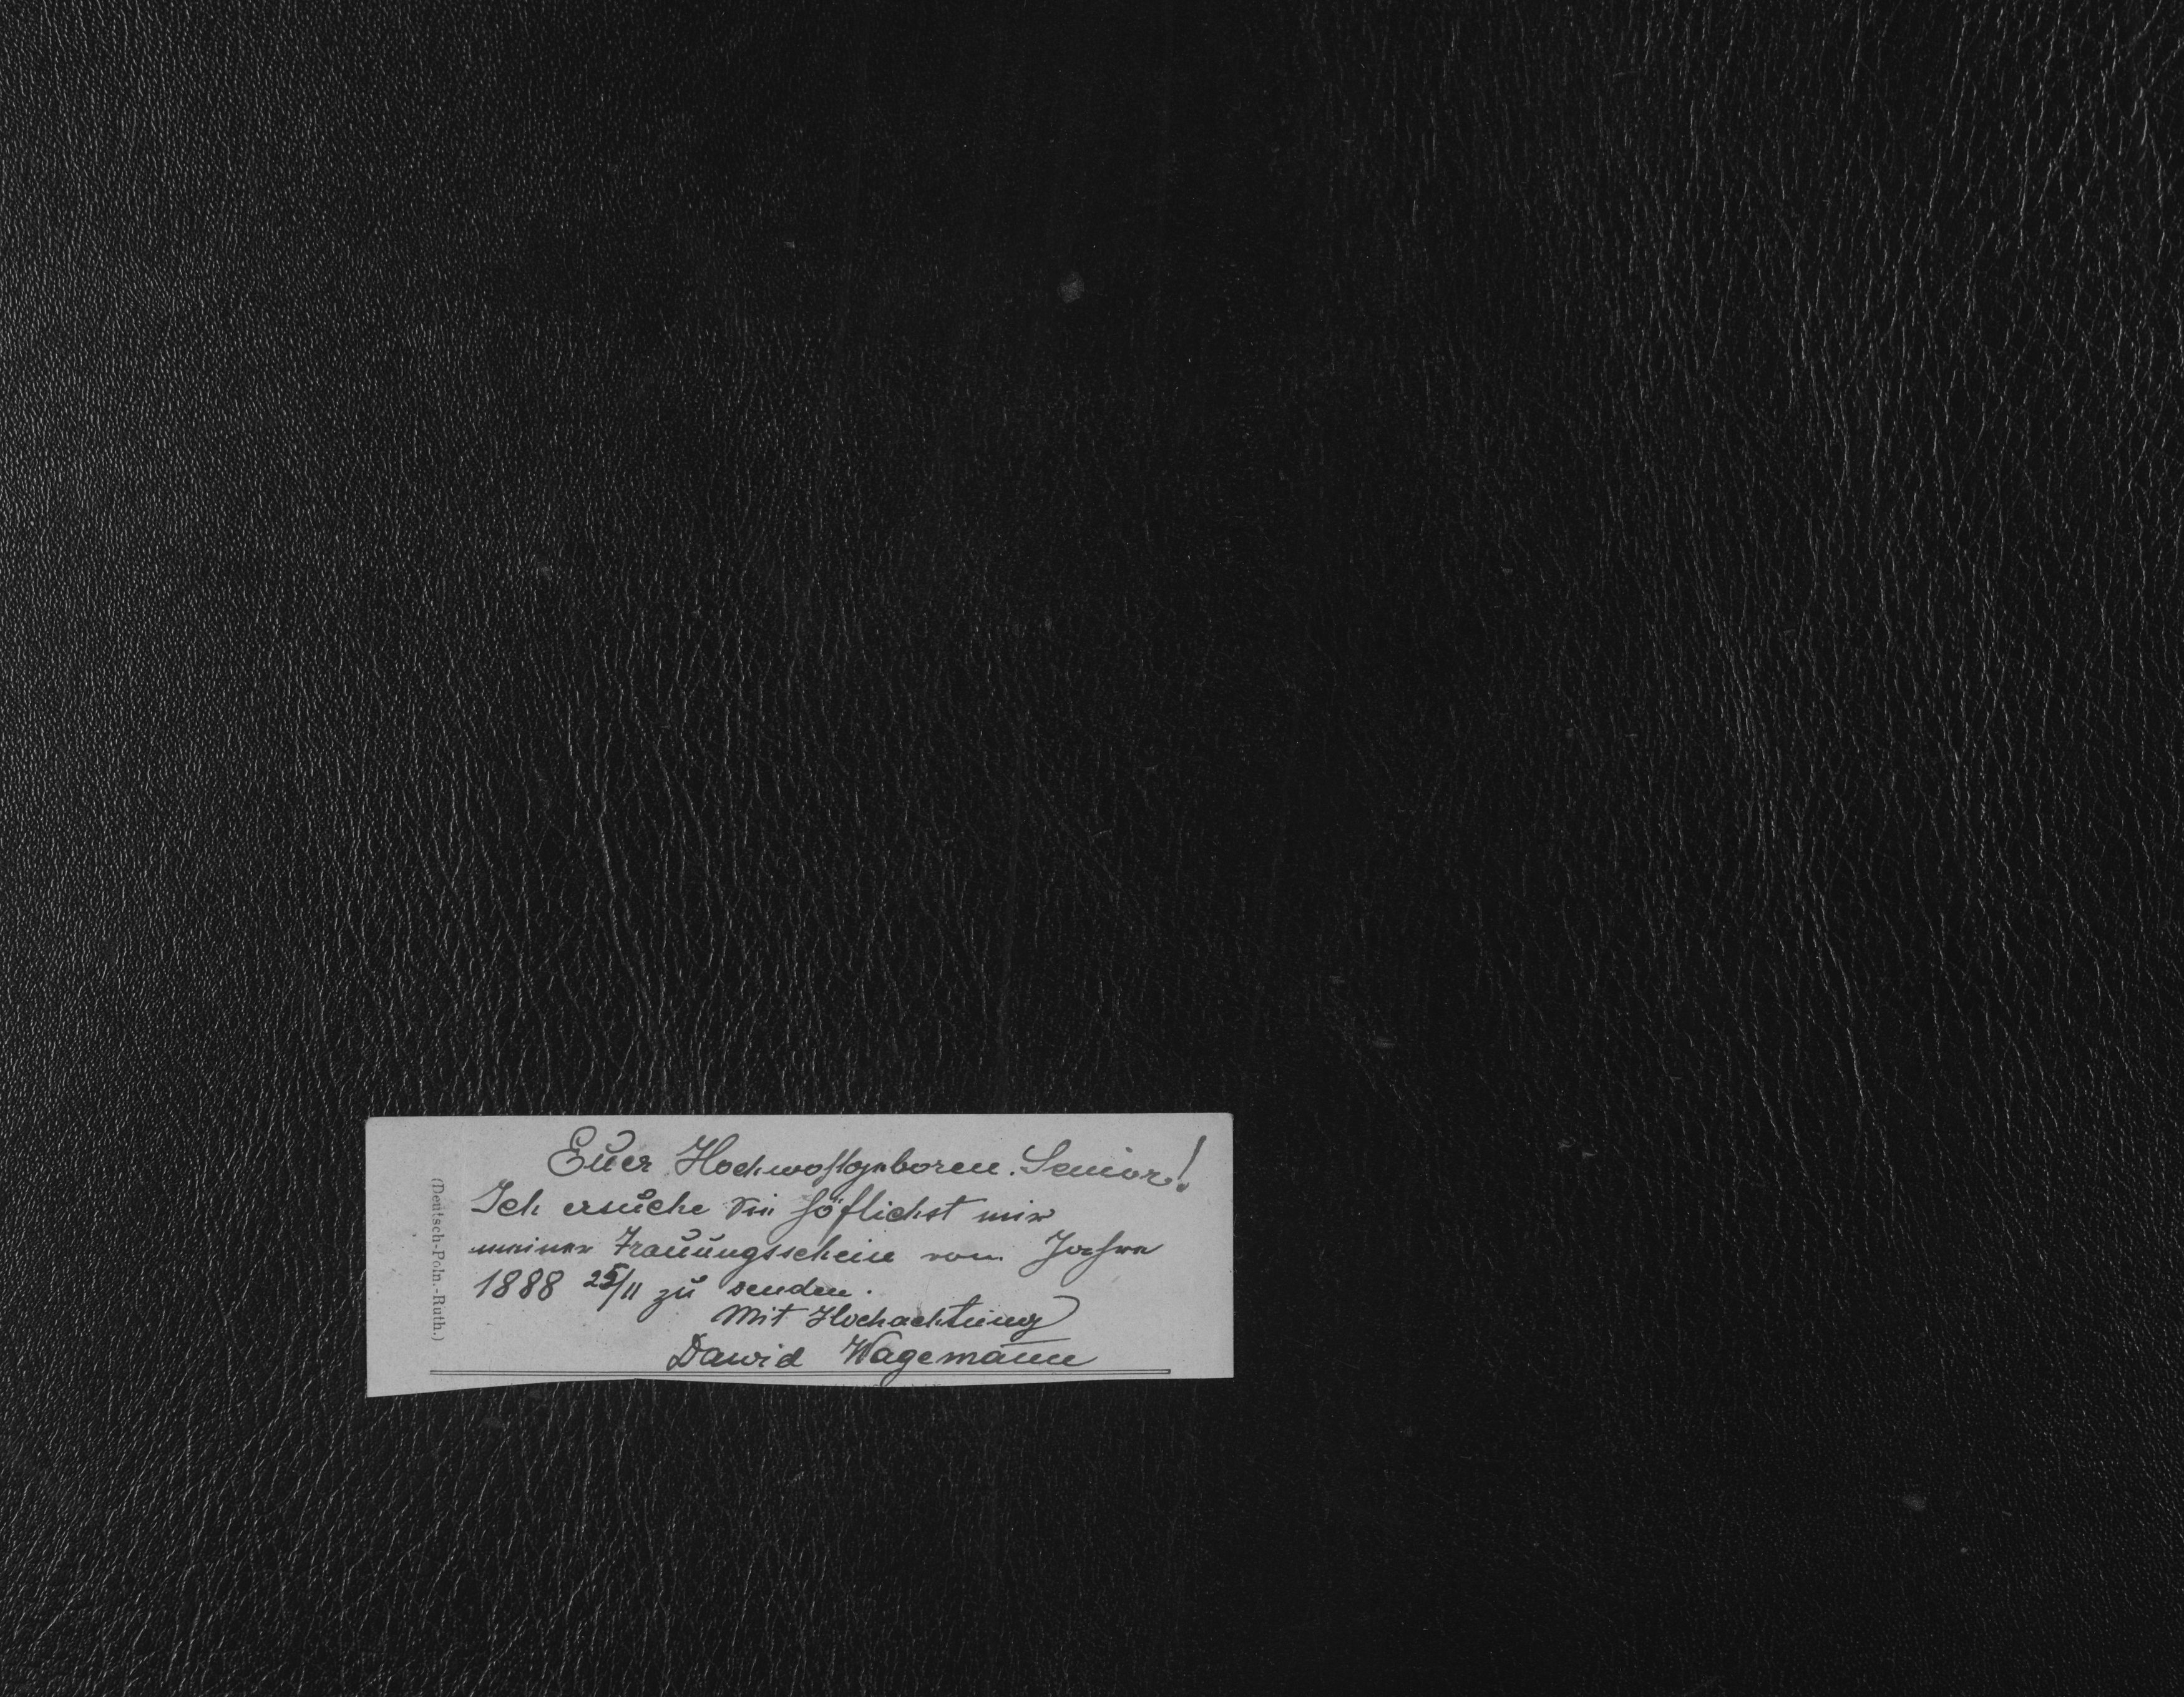 Euer Hochwohlgeboren Senior!
Ich ersuche Sie höflichst mir
meinen Trauungsschein vom Jahre
1888 25/11 zu senden.
Mit Hochachtung
Dawid Wagemann
(Deutsch-Poln.-Ruth.)